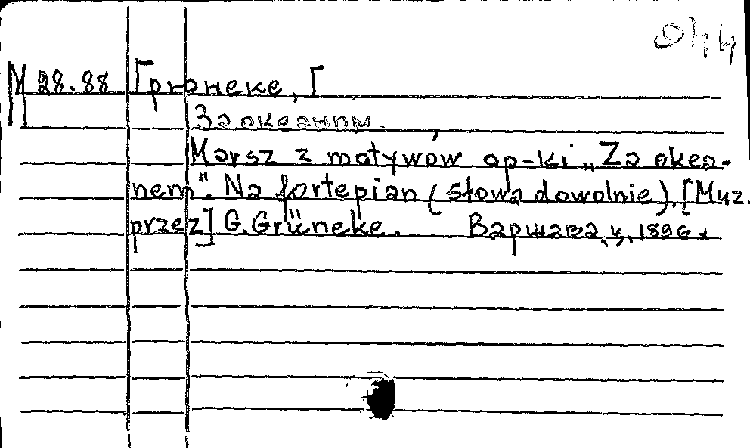 М 28.88 Грюнеке, Г
За океаном.
Marsz z motywów op-ki „Za ocea-
nem". Na fortepian (słowa dowolnie). [Muz.
przez] G. Grüneke. Варшава, ц. 1896.